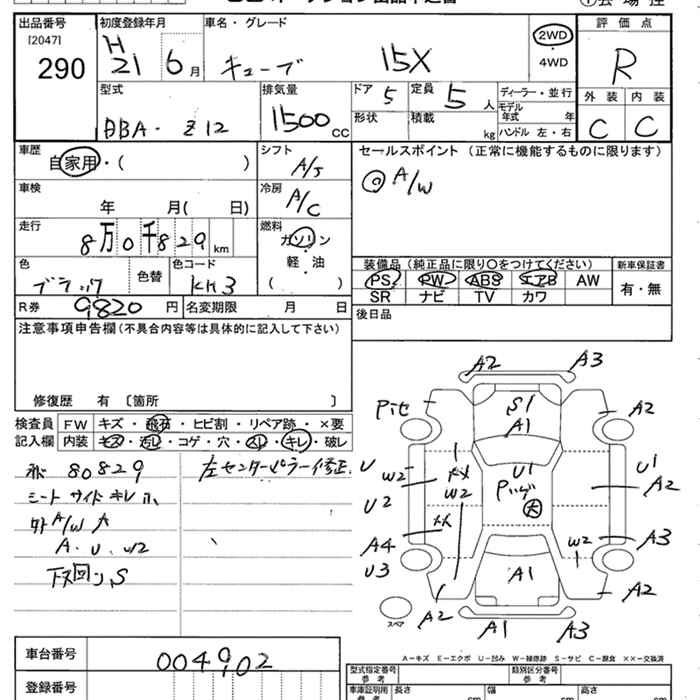 出品番号
[2047]
290
初度登録年月
H 21 6月
車名・グレード
キューブ 15X
2WD
・4WD
評価点
R
外装 内装
C C
型式
DBA・Z12
排気量
1500 CC
ドア 5
定員 5 人
形状
積載 kg
ディーラー・並行
モデル年式 年
ハンドル 左・右
車歴
自家用・( )
シフト
A/S
車検
年 月( 日)
冷房
A/C
走行
8万0千829 km
燃料
ガソリン
軽・油
( )
色
ブラック
色替
色コード
KH3
R券 9820円
名変期限 月 日
セールスポイント (正常に機能するものに限ります)
◎ A/W
装備品 (純正品に限り〇をつけてください)
PS PW ABS エアB AW
SR ナビ TV カワ
新車保証書
有・無
後日品
注意事項申告欄(不具合内容等は具体的に記入して下さい)
修復歴 有 〔箇所 〕
検査員
記入欄
FW キズ・飛石・ヒビ割・リペア跡・×要
内装 キズ・汚レ・コゲ・穴・スレ・キレ・破レ
80829
シート サイド キレ 小
外 A/W 大
A. U. W2
下回り S
左センターピラー修正
A2 A3
A2
S1
A1
U
W2
U2
XX
W2
U1
U1
A2
XX
A4
U3
W2
A3
A1
A2
A2
A1 A3
スペア
A－キズ E－エクボ U－凹み W－補修跡 S－サビ C－腐食 ××－交換済
車台番号
004902
登録番号
型式指定番号
参考
類別区分番号
参考
車庫証明用
参考
長さ cm
幅 cm
高さ cm